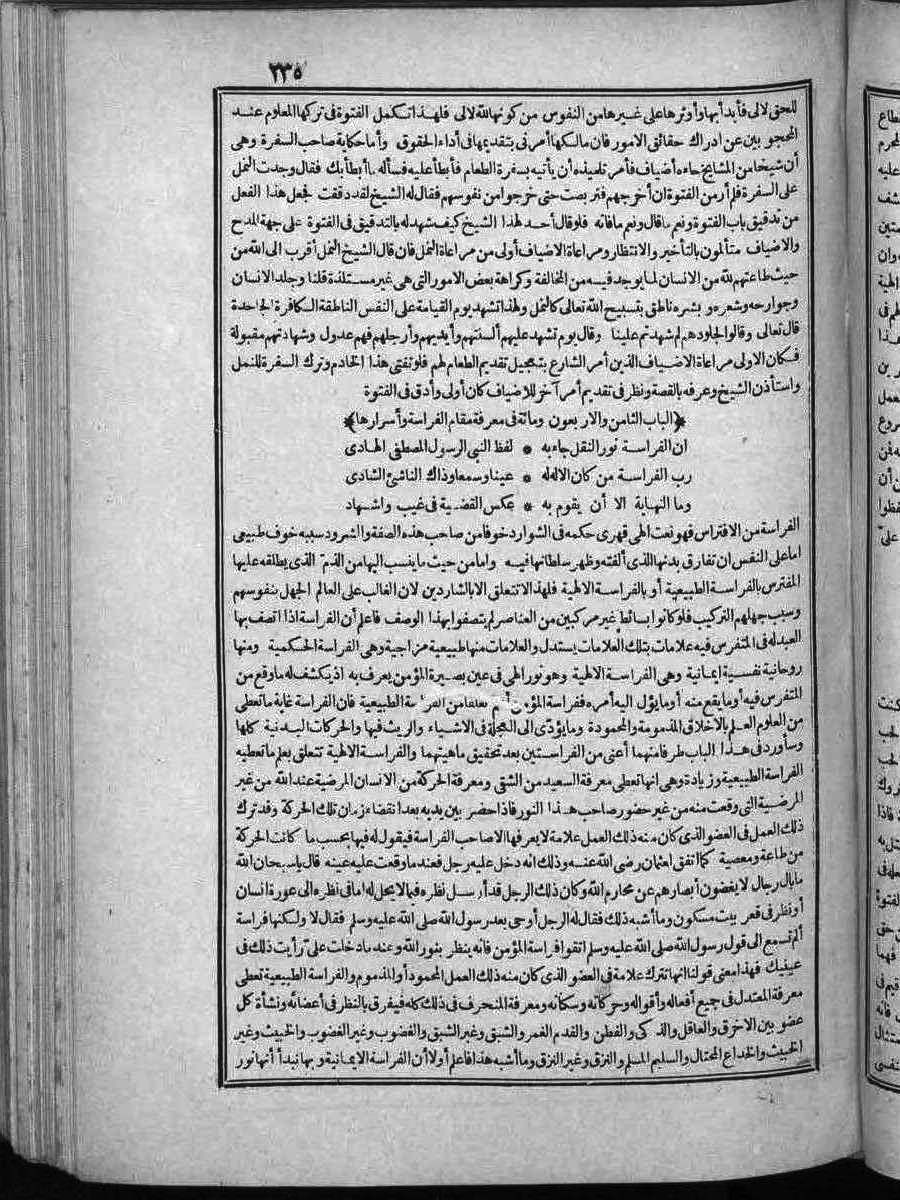 ٢٣٥
للحق لالى فأبدأ بها وأوثرها على غيرها من النفوس من كونها لله لالى فلهذا تكمل الفتوة فى تركها المعلوم عند
المحجوبين عن ادراك حقائق الامور فان مالكها أمرنى بتقديمها فى أداء الحقوق وأما حكاية صاحب السفرة وهى
أن شيخا من المشايخ جاءه أضياف فأمر تلميذه أن يأتيه بسفرة الطعام فأبطأ عليه فسأله ما أبطأ بك فقال وجدت النمل
على السفرة فلم أر من الفتوة أن أخرجهم فتربصت حتى خرجوا من نفوسهم فقال له الشيخ لقد دققت فجعل هذا الفعل
من تدقيق باب الفتوة ونعم ما قال ونعم ما فاته فلو قال أحد لهذا الشيخ كيف شهد له بالتدقيق فى الفتوة على جهة المدح
والاضياف متألمون بالتأخير والانتظار ومراعاة الاضياف أولى من مراعاة النمل فان قال الشيخ النمل أقرب الى الله من
حيث طاعتهم لله من الانسان لما يوجد فيه من المخالفة وكراهة بعض الامور التى هى غير مستلذة قلنا وجلد الانسان
وجوارحه وشعره وبشره ناطق بتسبيح الله تعالى كالنمل ولهذا تشهد يوم القيامة على النفس الناطقة الكافرة الجاحدة
قال تعالى وقالوا لجلودهم لم شهدتم علينا وقال يوم تشهد عليهم ألسنتهم وأيديهم وأرجلهم فهم عدول وشهادتهم مقبولة
فكان الاولى مراعاة الاضياف الذين أمر الشارع بتعجيل تقديم الطعام لهم فلو تفتى هذا الخادم وترك السفرة للنمل
واستأذن الشيخ وعرفه بالقصة ونظر فى تقديم أمر آخر للاضياف كان أولى وأدق فى الفتوة
﴿الباب الثامن والاربعون ومائة فى معرفة مقام الفراسة وأسرارها﴾
ان الفراسة نور النقل جاء به * لفظ النبى الرسول المصطفى الهادى
رب الفراسة من كان الاله له * عينا وسمعا وذاك الناشئ الشادى
وما النهاية الا أن يقوم به * عكس القضية فى غيب واشهاد
الفراسة من الافتراس فهو نعت الهى قهرى حكمه فى الشوارد خوفا من صاحب هذه الصفة والشرود سببه خوف طبيعى
اما على النفس ان تفارق بدنها الذى ألفته وظهر سلطانها فيه واما من حيث ما ينسب اليها من الذم الذى يطلقه عليها
المفترس بالفراسة الطبيعية أو بالفراسة الالهية فلهذا لا تتعلق الا بالشاردين لان الغالب على العالم الجهل بنفوسهم
وسبب جهلهم التركيب فلو كانوا بسائط غير مركبين من العناصر لم يتصفوا بهذا الوصف فاعلم أن الفراسة اذا اتصف بها
العبد له فى المتفرس فيه علامات بتلك العلامات يستدل والعلامات منها طبيعية مزاجية وهى الفراسة الحكمية ومنها
روحانية نفسية ايمانية وهى الفراسة الالهية وهو نور الهى فى عين بصيرة المؤمن يعرف به اذ يكشف له ما وقع من
المتفرس فيه أو ما يقع منه أو ما يؤل اليه أمره ففراسة المؤمن أعم تعلقا من الفراسة الطبيعية فان الفراسة غاية ما تعطى
من العلوم العلم بالأخلاق المذمومة والمحمودة وما يؤدّى الى العجلة فى الاشياء والريث فيها والحركات البدنية كلها
وسأورد فى هذا الباب طرفا منهما أعنى من الفراستين بعد تحقيق ماهيتهما والفراسة الالهية تتعلق بعلم ما تعطيه
الفراسة الطبيعية وزيادة وهى انها تعطى معرفة السعيد من الشقى ومعرفة الحركة من الانسان المرضية عند الله من غير
المرضية التى وقعت منه من غير حضور صاحب هذا النور فاذا حضر بين يديه بعد انقضاء زمان تلك الحركة وقد ترك
ذلك العمل فى العضو الذى كان منه ذلك العمل علامة لا يعرفها الا صاحب الفراسة فيقول له فيها بحسب ما كانت الحركة
من طاعة ومعصية كما اتفق لعثمان رضى الله عنه وذلك انه دخل عليه رجل فعندما وقعت عليه عينه قال يا سبحان الله
ما بال رجال لا يغضون أبصارهم عن محارم الله وكان ذلك الرجل قد أرسل نظره فيما لا يحل له اما فى نظره الى عورة انسان
أو نظر فى قعر بيت مسكون وما أشبه ذلك فقال له الرجل أوحى بعد رسول الله صلى الله عليه وسلم فقال لا ولكنها فراسة
ألم تسمع الى قول رسول الله صلى الله عليه وسلم اتقوا فراسة المؤمن فانه ينظر بنور الله وعندما دخلت علىّ رأيت ذلك فى
عينيك فهذا معنى قولنا انها تترك علامة فى العضو الذى كان منه ذلك العمل المحمود أو المذموم والفراسة الطبيعية تعطى
معرفة المعتدل فى جميع أفعاله وأقواله وحركاته وسكاته ومعرفة المنحرف فى ذلك كله فيفرق بالنظر فى أعضائه ونشأة كل
عضو بين الاخرق والعاقل والذكى والفطن والفدم الغمر والشبق وغير الشبق والغضوب وغير الغضوب والخبيث وغير
الخبيث والخداع المحتال والسليم المسلم والنزق وغير النزق وما أشبه هذا فاعلم أولا أن الفراسة الايمانية وبها نبدأ أنها نور